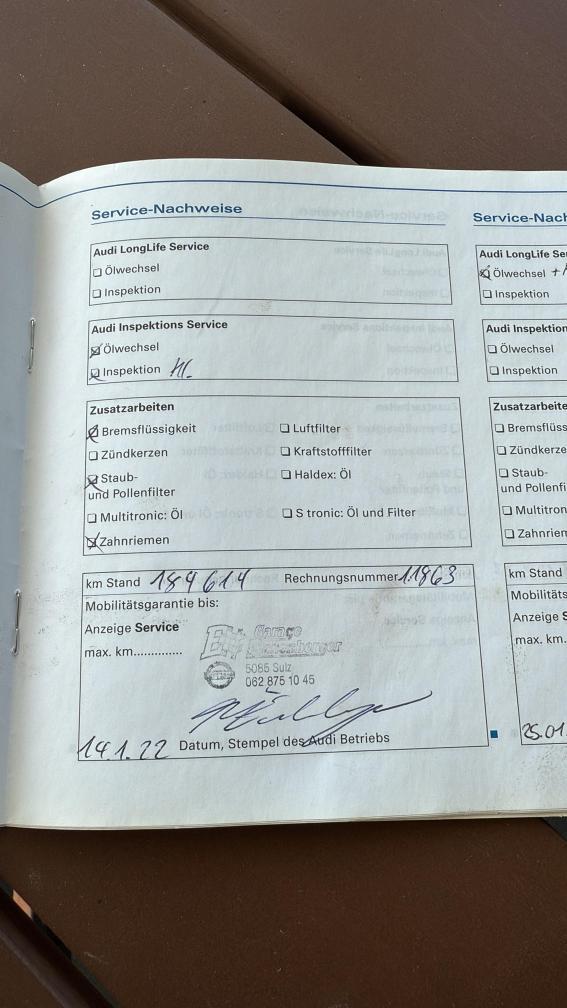 Service-Nachweise
Audi LongLife Service
Ölwechsel
Inspektion
Audi Inspektions Service
Ölwechsel
Inspektion
Zusatzarbeiten
Bremsflüssigkeit
Luftfilter
Zündkerzen
Kraftstofffilter
Staub-
und Pollenfilter
Haldex: Öl
Multitronic: Öl
S tronic: Öl und Filter
Zahnriemen
km Stand 189614 Rechnungsnummer 11863
Mobilitätsgarantie bis:
Anzeige Service
max. km.............
Garage
5085 Sulz
062 875 10 45
14.1.22 Datum, Stempel des Audi Betriebs
Service-Nach
Audi LongLife Se
Ölwechsel +
Inspektion
Audi Inspektion
Ölwechsel
Inspektion
Zusatzarbeite
Bremsflüss
Zündkerze
Staub-
und Pollenfi
Multitron
Zahnriem
km Stand
Mobilitäts
Anzeige S
max. km..
25.01